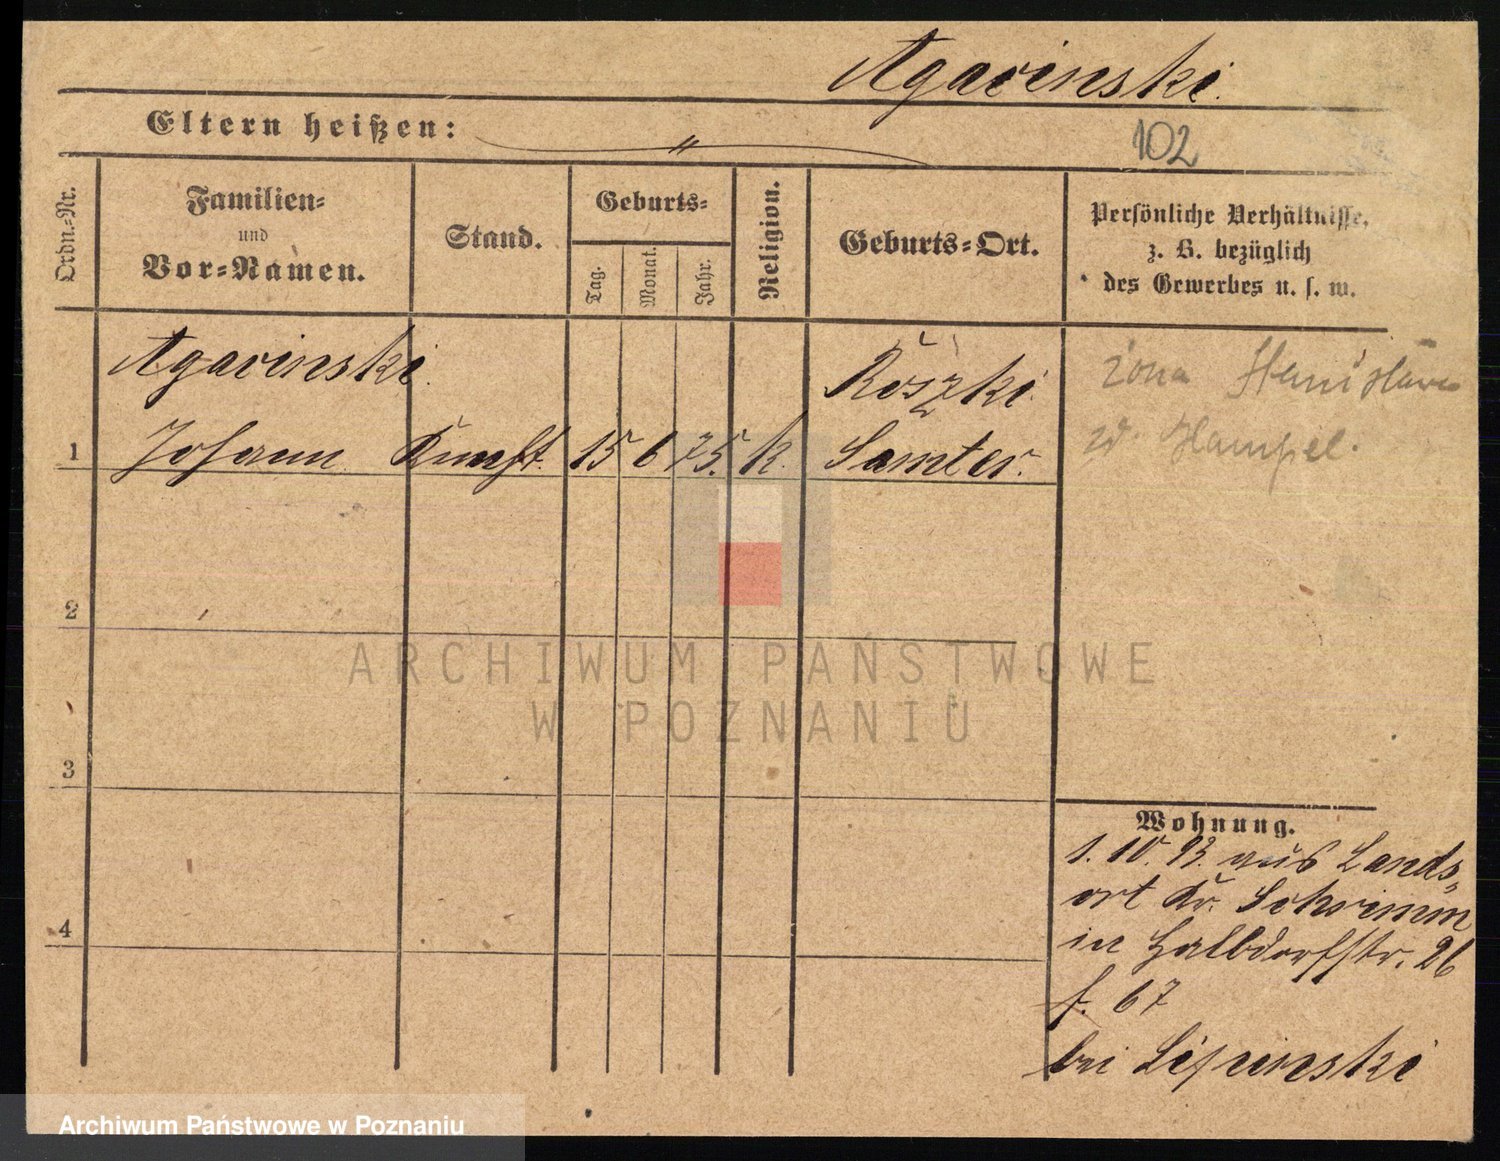 Agacinski.
Eltern heißen: "
102
Ordn.-Nr.
Familien-
und
Vor-Namen.
Stand.
Geburts-
Tag.
Monat.
Jahr.
Religion.
Geburts-Ort.
Persönliche Verhältnisse,
z. B. bezüglich
des Gewerbes u. s. w.
Agacinski.
Roszki
żona Stanisława
1 Johann 15 6 75. k. Samter.
zd. Hampel.
2
ARCHIWUM PAŃSTWOWE
W POZNANIU
3
Wohnung.
1. 10. 93. aus Lands-
ort Kr. Schrimm
4
in Halbdorfstr. 26
f. 67
bei Lipinski
Archiwum Państwowe w Poznaniu